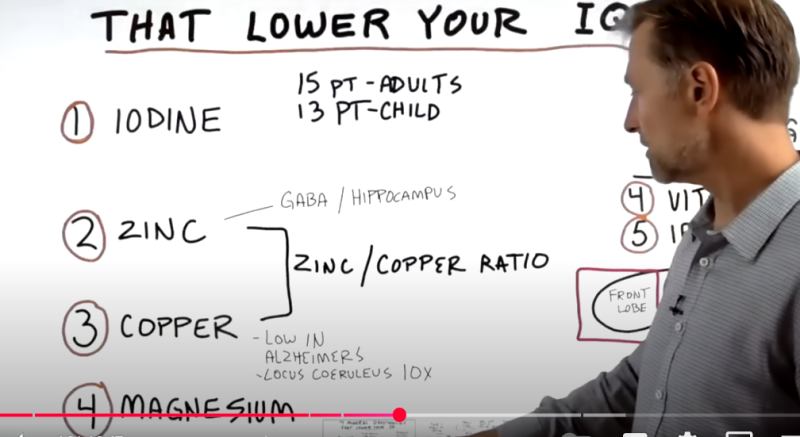 THAT LOWER YOUR IQ
15 PT-ADULTS
13 PT-CHILD
① IODINE
GABA / HIPPOCAMPUS
② ZINC
ZINC/COPPER RATIO
③ COPPER
- LOW IN
ALZHEIMERS
- LOCUS COERULEUS 10X
④ MAGNESIUM
④ VIT
⑤
FRONT
LOBE